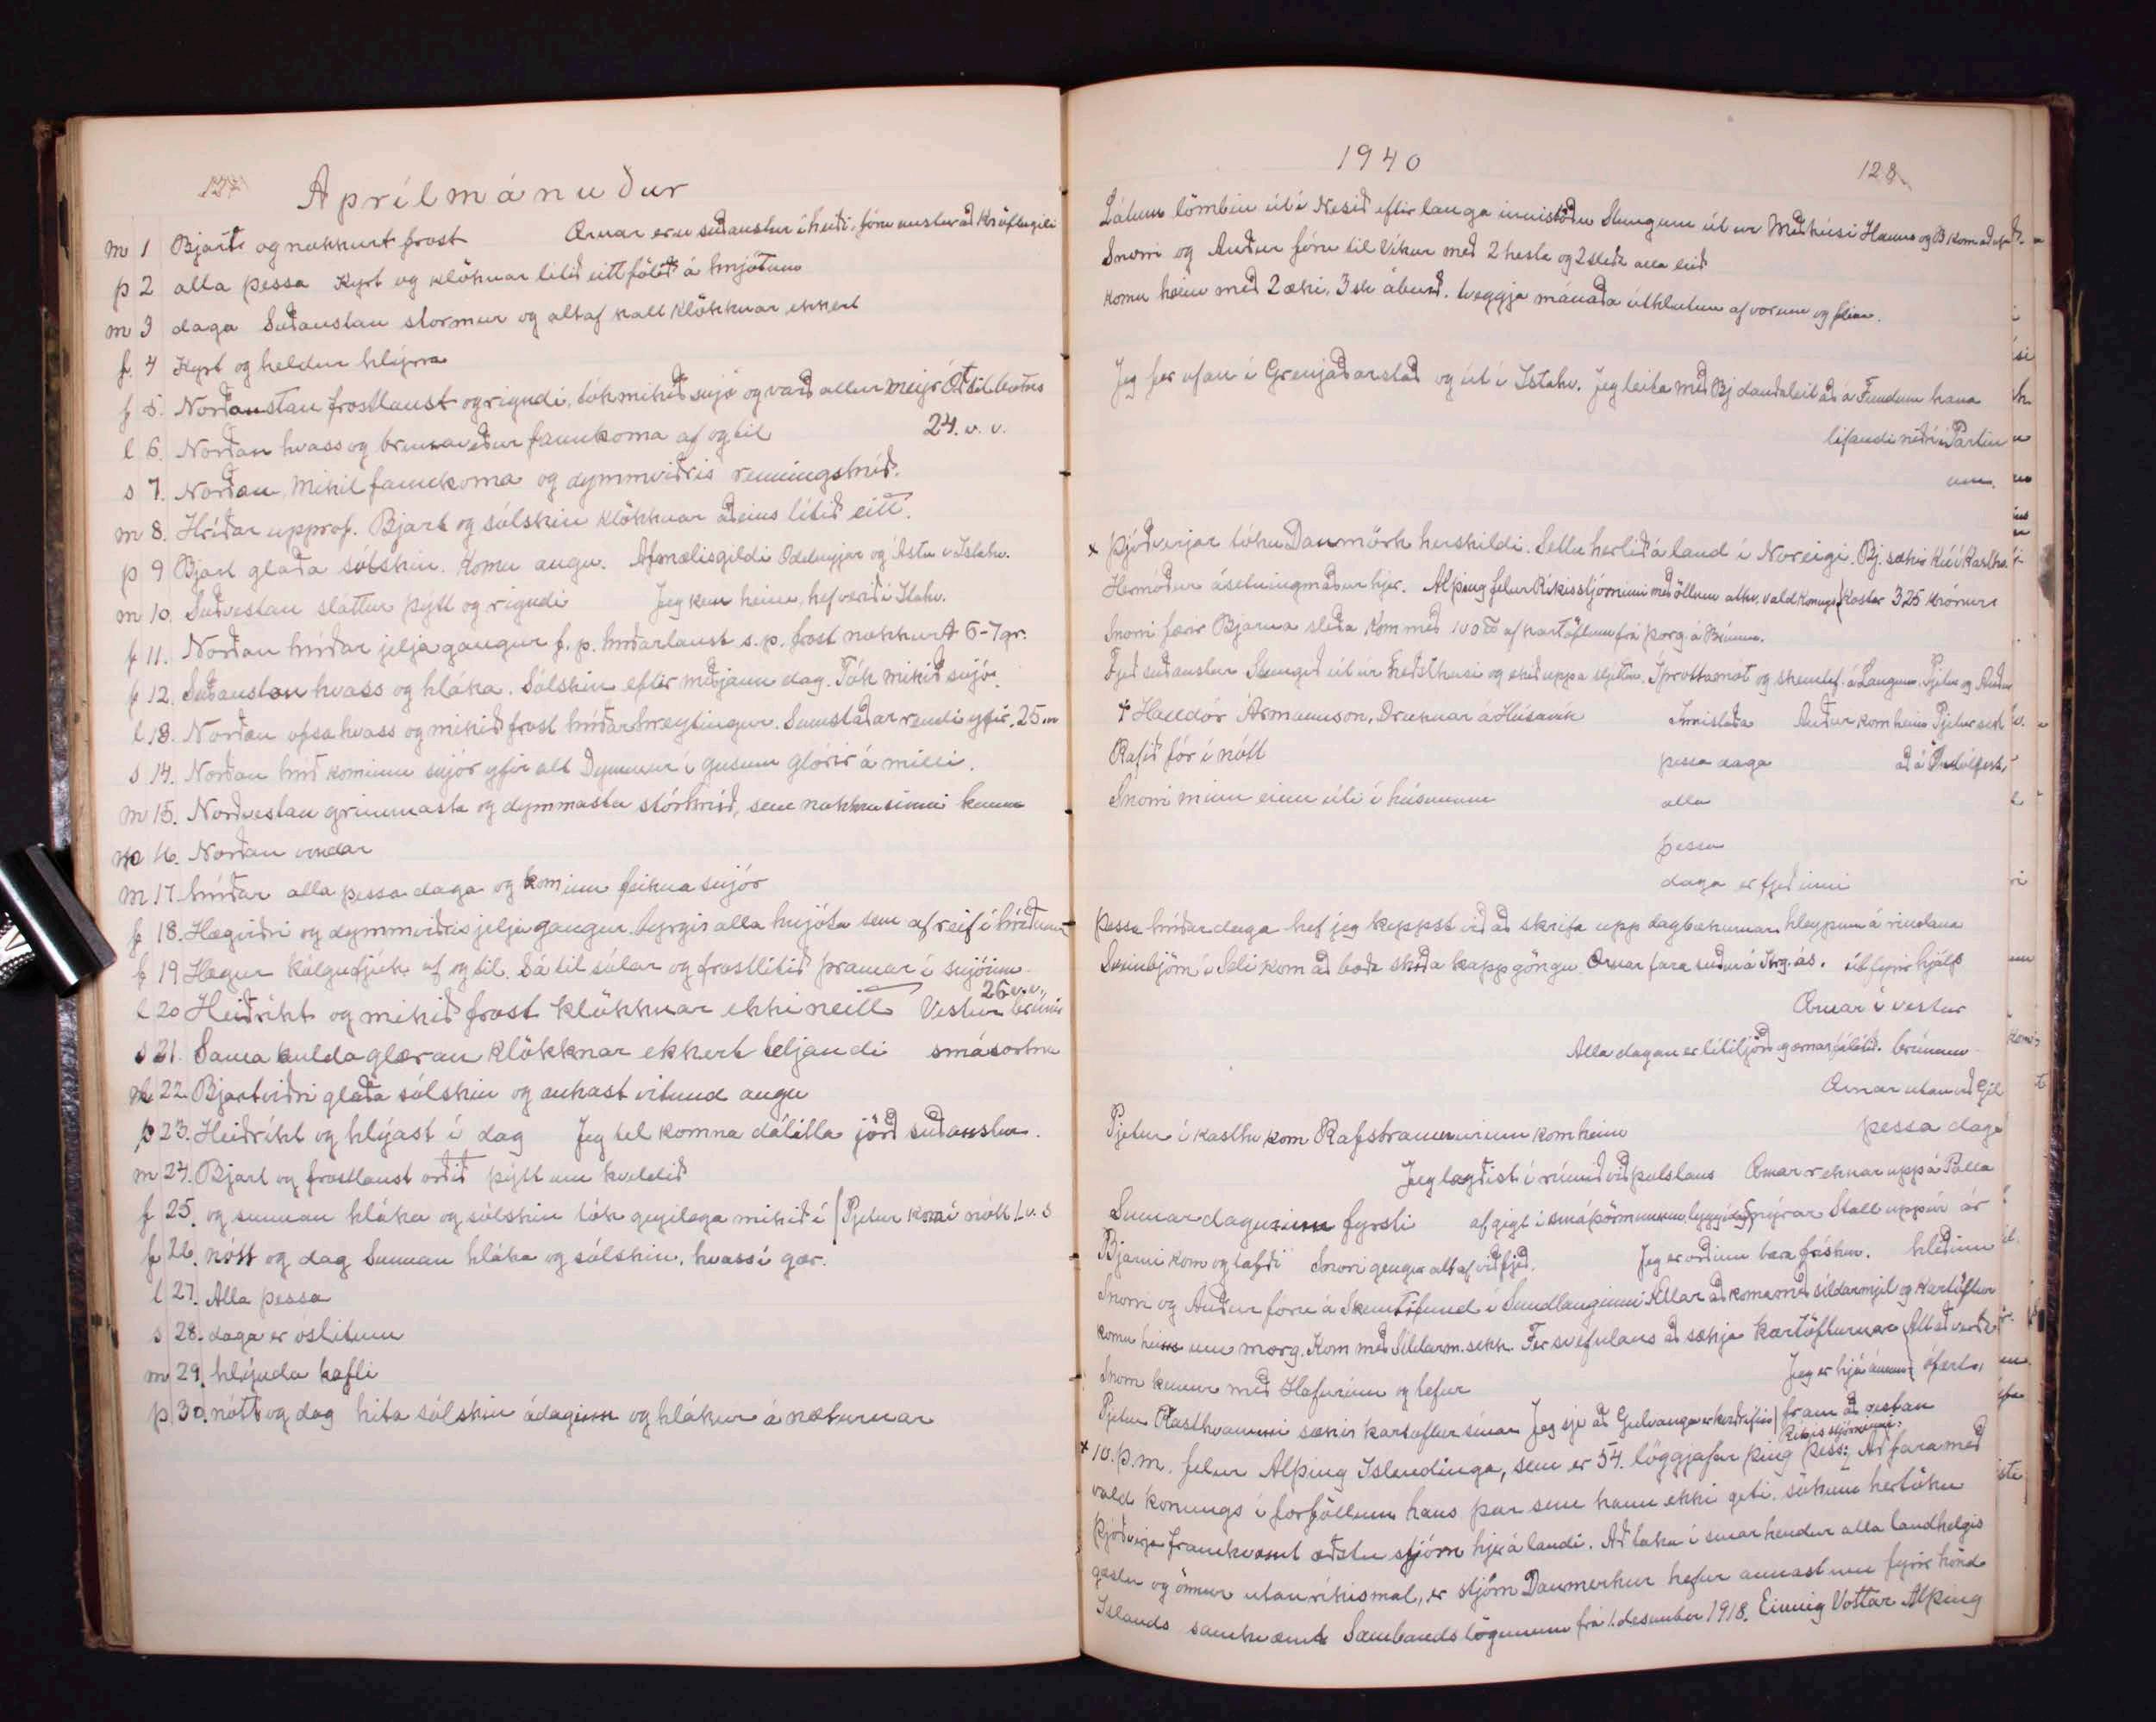 127
Aprílmánuður
m 1 Bjart og nokkurt frost Ærnar eru suðaustur í heiði, fóru austur að Kröflugili
þ 2 alla þessa Kyrt og klöknar lítið eitt fölið á hnjótum
m 3 daga Suðaustan stormur og altaf kalt klökknar ekkert
f. 4 Kyrt og heldur hlýrra
f 5. Norðaustan frostlaust og rigndi, tók mikið snjó og varð allur meyr til botns
l 6. Norðan hvass og bruna veður fannkoma af og til 24. v. v.
s 7. Norðan, Mikil fannkoma og dymmviðris renningshríð.
m 8. Hríðar upprof. Bjart og sólskin klökknar aðeins lítið eitt.
þ 9 Bjart glaða sólskin. Komu augu. Afmælisgildi Oddnýjar og Ástu í Ístahv.
m 10. Suðvestan sláttur þýtt og rigndi Jeg kem heim, hef verið í Ístahv.
f 11. Norðan hríðar jeljagangur f. p. hríðarlaust s. p. frost nokkurt 6-7 gr.
f 12. Suðaustan hvass og hláka. Sólskin eftir miðjann dag. Tók mikið snjó.
l 13. Norðan ofsahvass og mikið frost hríðarhreytingur. Sumstaðar rendi yfir. 25. v v
s 14. Norðan hríð kominn snjór yfir alt Dymmur í gusum glórir á milli.
m 15. Norðvestan grimmasta og dymmasta stórhríð, sem nokkru sinni kemur
þ 16. Norðan vondar
m 17 hríðar alla þessa daga og kominn feikna snjór
f 18. Hægviðri og dymmviðris jeljagangur byrgir alla hnjóta sem af reif í hríðunum
f 19 Hægur kálgufjúk af og til. Sá til sólar og frostlítið þramar í snjóinn
l 20 Heiðríkt og mikið frost klökknar ekki neitt 26 v. v., Vestur brúnir
s 21. Sama kulda glæran klökknar ekkert teljandi smásortna
m 22. Bjartviðri glaða sólskin og aukast vitund augu
þ 23. Heiðríkt og hlýjast í dag Jeg tel komna dálitla jörð suðaustur.
m 24. Bjart og frostlaust orðið þýtt um kveldið
f 25. og sunnan hláka og sólskin tók geysilega mikið í Pjetur kom í nótt 1. v. s
f 26. nótt og dag Sunnan hláka og sólskin, hvass í gær.
l 27. Alla þessa
s 28. daga er óslitinn
m 29. hlýinda kafli
þ 30. nótt og dag hita sólskin á daginn og hlákur á næturnar
1940
128
Látum lömbin út í Nesið eftir langa innistöðu Stungum út úr Miðhúsi Hannes og B kom að
Snorri og Auður fóru til Víkur með 2 hesta og 2 sleða alla leið
komu heim með 2 æki, 3 sk áburð. tveggja mánaða úthlutun af vörum og fleira.
Jeg fer ofan í Grenjaðarstað og út í Ístahv. Jeg leita með Bj dauðaleit að á Fundum hana
lifandi niðrí Partin
um.
× Þjóðverjar tóku Danmörk herskildi. Settu herlið á land í Noreigi. Bj. sækir kú í Kasthv.
Hermóður ásetningmaður hjer. Alþing felur Ríkisstjórninni með öllum atkv. vald Konungs Kostar 325 krónur
Snorri færir Bjarna sleða Kom með 100 pd af kartöflum frá Þorg. á Brúum.
Fjeð suðaustur Stungið út úr og ekið uppá Íþróttamót og skemtif. á Laugum. Pjetur og Auður
† Halldór Ármannsson, Druknar á Húsavík Innistaða Auður kom heim Pjetur
Rafið fór í nótt þessa daga
Snorri minn einn úti í húsunum alla
þessa
daga er fjeð inni
Þessa hríðardaga hef jeg keppst við að skrifa upp dagbækurnar. hleypum á rindana
Sveinbjörn í Seli kom að boða skíða kappgöngu. Ærnar fara suður á Þrg. ás. út fyrir hjálp
Ærnar í vestur
Alla dagana er lítil jörð og ærnar útilátið. brúnum
Ærnar utan við Gil
Pjetur í Kasthv kom Rafstraumurinn kom heim þessa daga
Jeg lagðist í rúmið við púlslaus Ærnar reknar uppá Palla
Sumardagurinn fyrsti af gigt í smáþörmunum, Stall uppúr ár
Bjarni kom og tafði Snorri gengur altaf við fjeð. Jeg er orðinn bara frískur. hleðinn
Snorri og Auður fóru á Skemtifund í Sundlauginni Ætlar að koma með síldarmjöl og kartöflur
komu heim um morg. Kom með Síldarm. sekk. Fer svefnlaus að sækja kartöflurnar Alt að verða
Snorri kemur með Hafurinn og tefur Jeg er hjá ánum ófært,
Pjetur Kasthvammi sækir kartöflur sínar Jeg sje að Gulvanga er kviðrifin fram að vestan
× 10. þ. m. felur Alþing Íslendinga, sem er 54. löggjafar þing þess: Ríkisstjórninni: Að fara með
vald konungs í forföllum hans þar sem hann ekki geti, sökum hertöku
Þjóðverja framkvæmt æðstu stjórn hjer á landi. Að taka í sínar hendur alla landhelgis
gæslu og önnur utanríkismál, er stjórn Danmerkur hefur annast um fyrir hönd
Íslands samkvæmt Sambandslögunum frá 1. desember 1918. Einnig Vottar Alþing